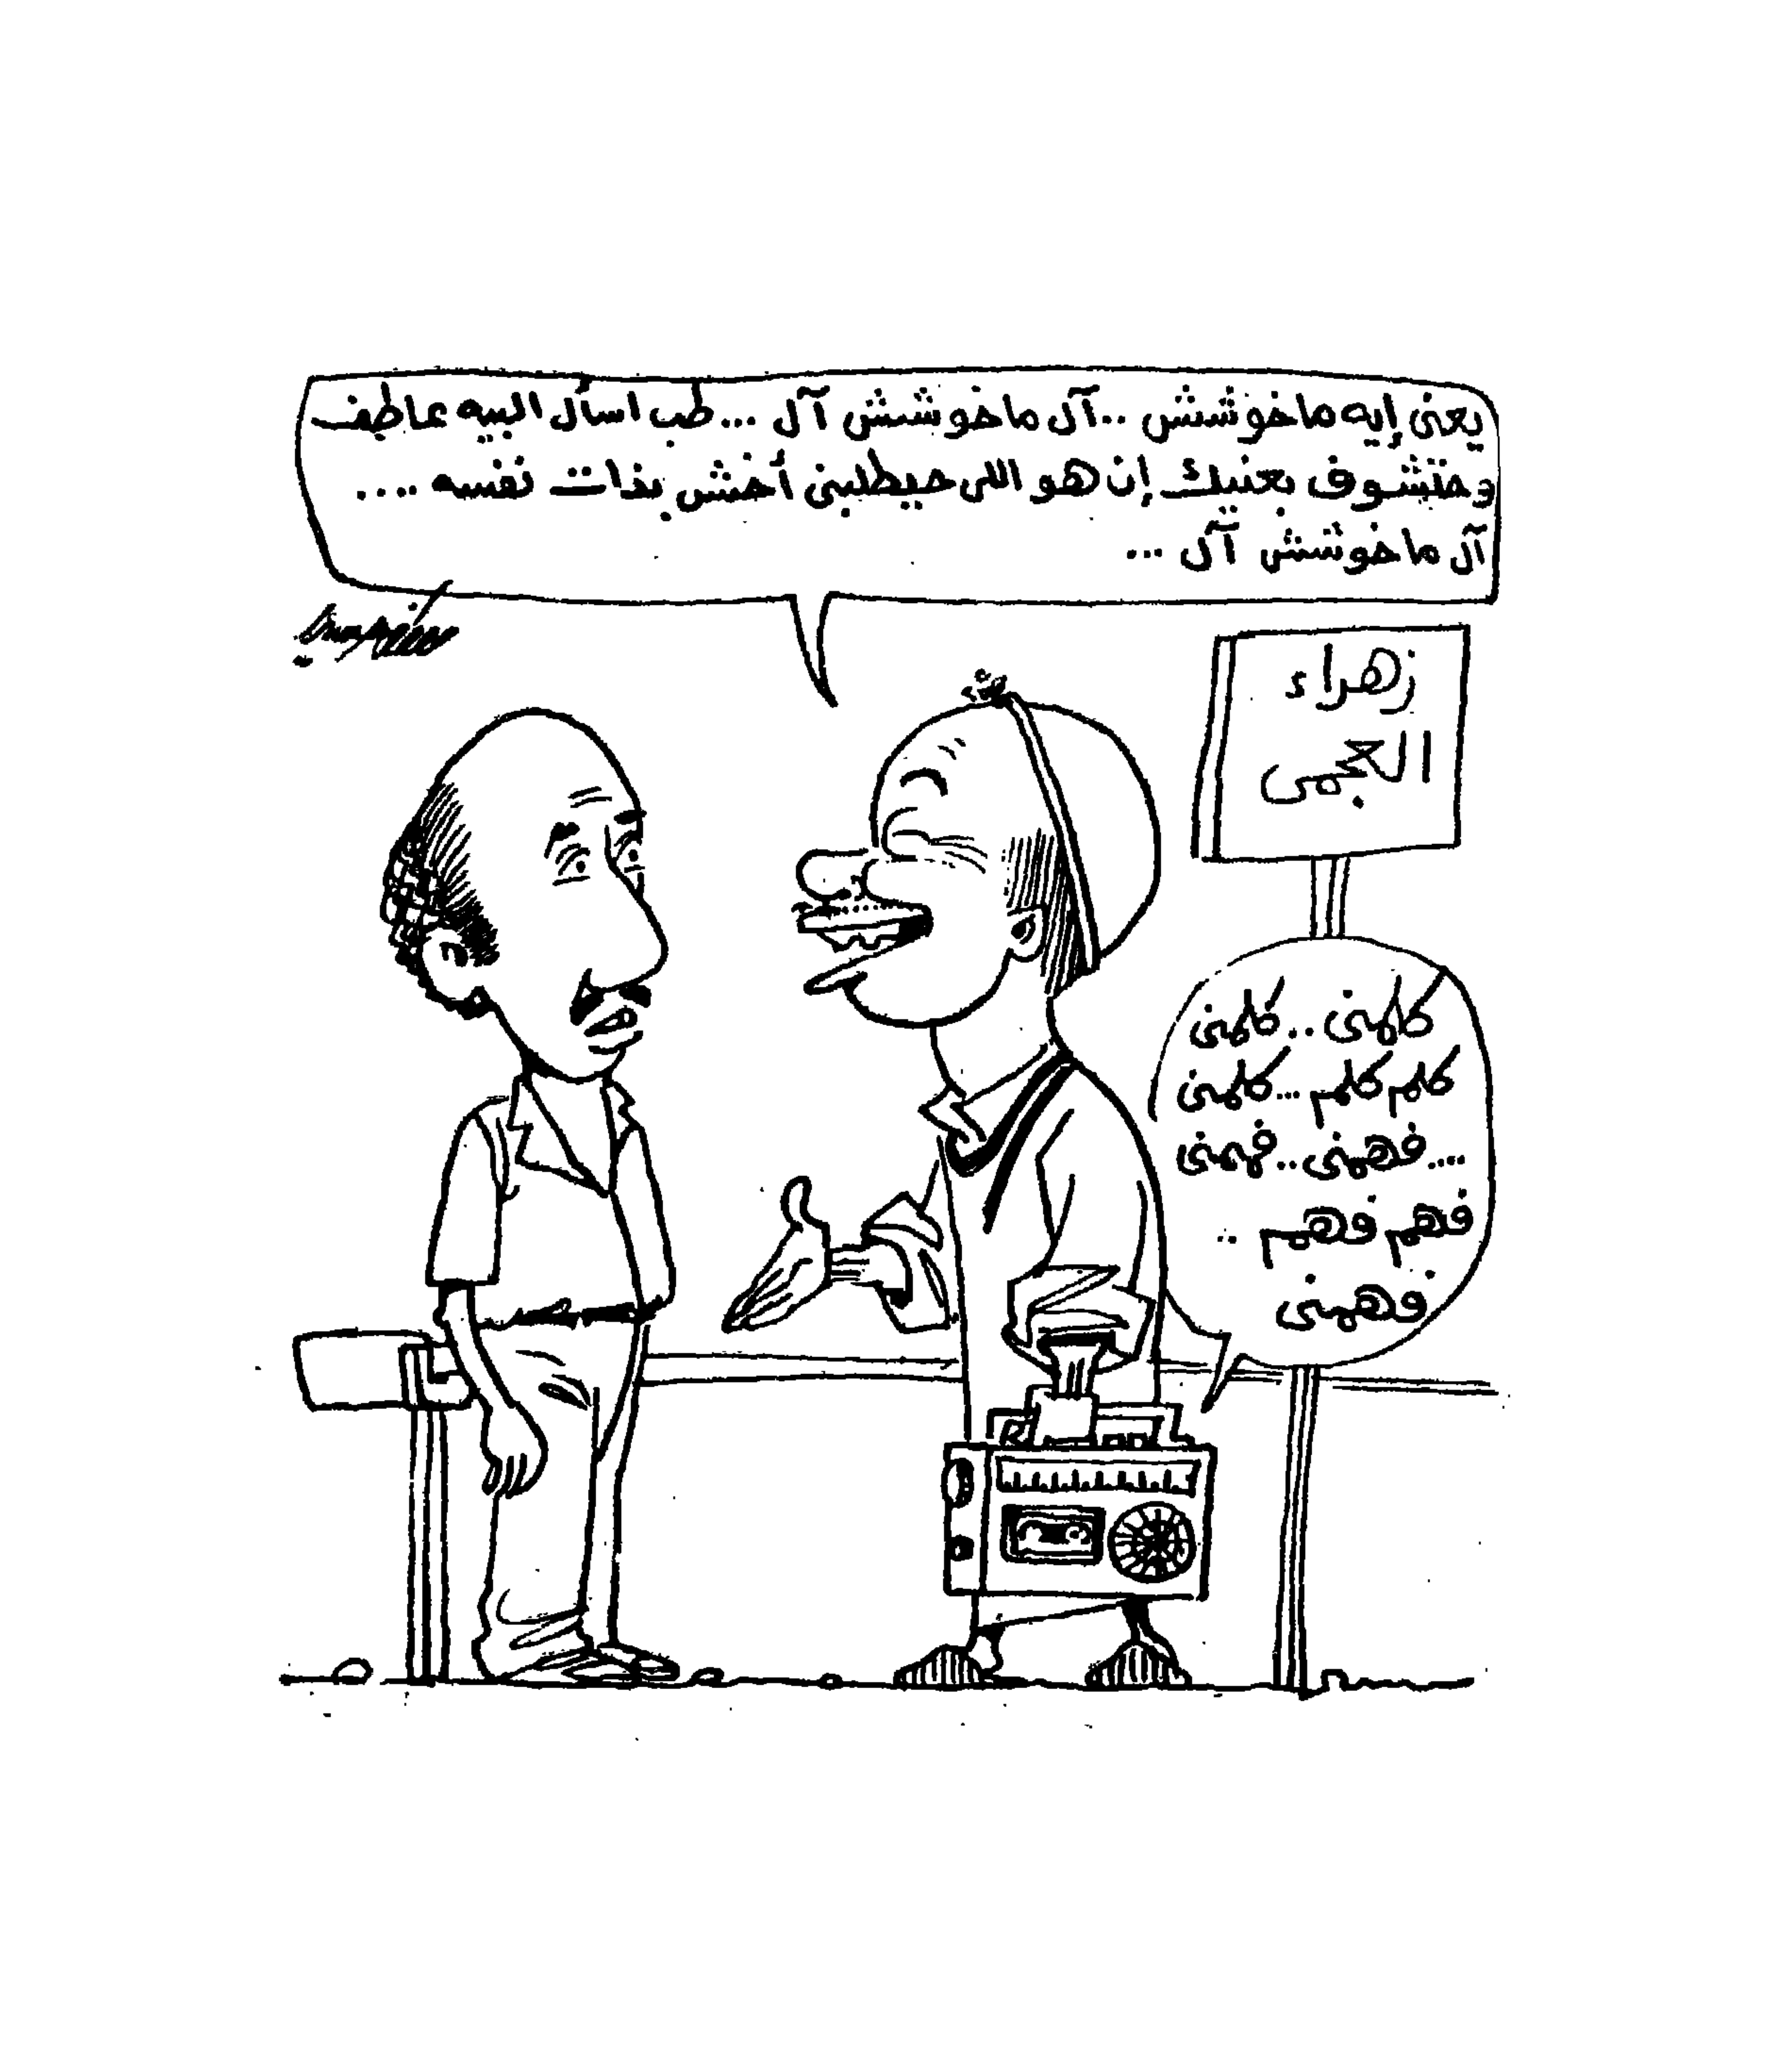 يعنى إيه ماخوشش .. آل ماخوشش آل ... طب اسأل البيه عاطف
وحتشوف بعنيك إن هو اللى حيطلبنى أخش بذات نفسه ....
آل ماخوشش آل ...
زهراء
العجمى
كلمنى .. كلمنى
كلم كلم ... كلمنى
.... فهمنى .. فهمنى
فهم فهم ..
فهمنى